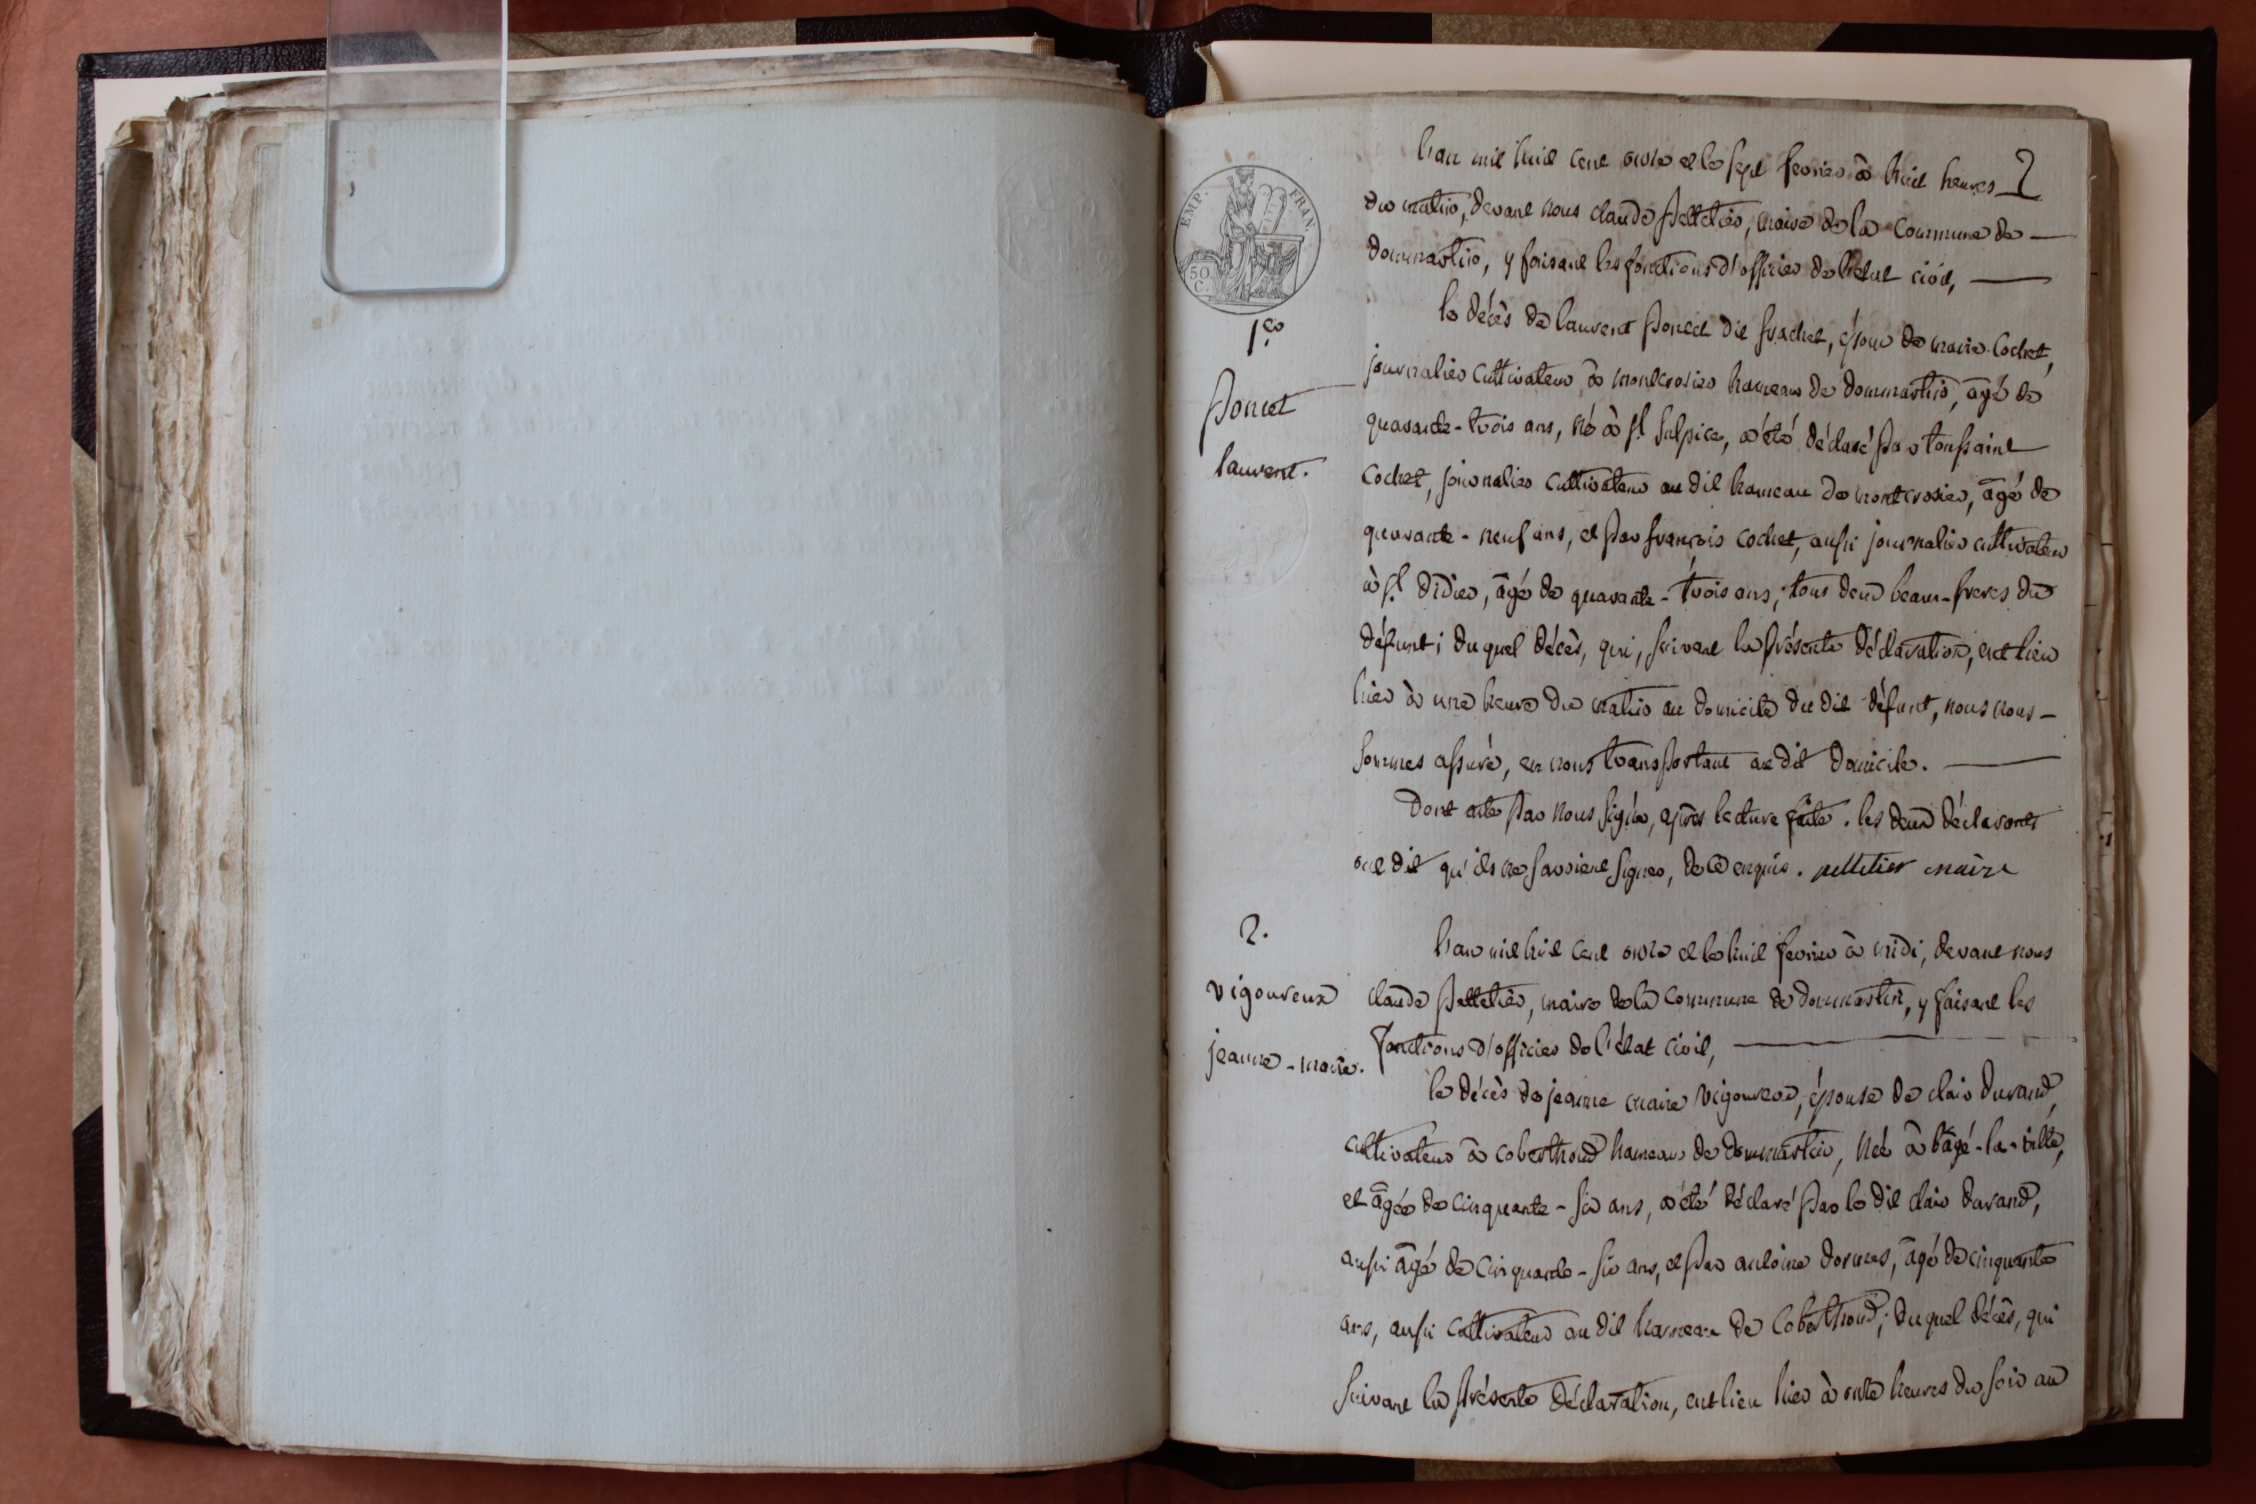 2
l'an mil huit cent onze et le sept fevrier à huit heures
du matin, devant nous claude pelletier, maire de la commune de
dommartin, y faisant les fonctions d'officier de l'état civil,
EMP. FRAN.
50 C.
1.er
poncet
laurent.
le décès de laurent poncet dit frachet, époux de marie cochet,
journalier cultivateur à montcrosier hameau de dommartin, âgé de
quarante-trois ans, né à st sulpice, a été déclaré par toussaint
cochet, journalier cultivateur au dit hameau de montcrosier, âgé de
quarante-neuf ans, et par françois cochet, aussi journalier cultivateur
à st didier, âgé de quarante-trois ans, tous deux beaux-freres du
défunt; du quel décès, qui, suivant la présente déclaration, eut lieu
hier à une heure du matin au domicile du dit défunt, nous nous
sommes assuré, en nous transportant au dit domicile.
Dont acte par nous signé, après lecture faite. les deux déclarants
ont dit qu'ils ne savoient signer, de ce enquis. pelletier maire
2.
vigoureux
jeanne-marie.
l'an mil huit cent onze et le huit fevrier à midi, devant nous
claude pelletier, maire de la commune de dommartin, y faisant les
fonctions d'officier de l'état civil,
le décès de jeanne marie vigoureux, épouse de clair durand,
cultivateur à coberthoud hameau de dommartin, née à bâgé-la-ville,
et âgée de cinquante-six ans, a été déclaré par le dit clair durand,
aussi âgé de cinquante-six ans, et par antoine dormes, âgé de cinquante
ans, aussi cultivateur au dit hameau de coberthoud; du quel décès, qui
suivant la présente déclaration, eut lieu hier à onze heures du soir au